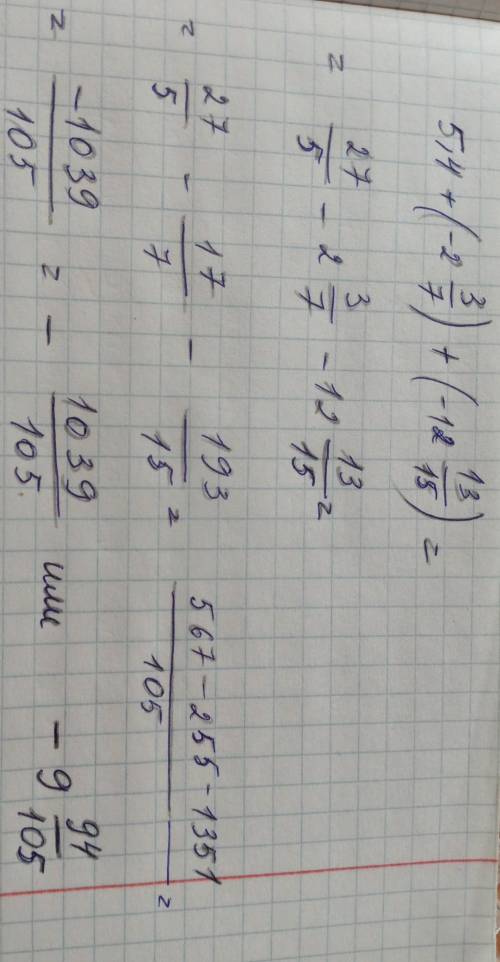 5,4 + (-2 3/7) + (-12 13/15) =
= 27/5 - 2 3/7 - 12 13/15 =
= 27/5 - 17/7 - 193/15 = (567 - 255 - 1351)/105 =
= -1039/105 = - 1039/105 или - 9 94/105